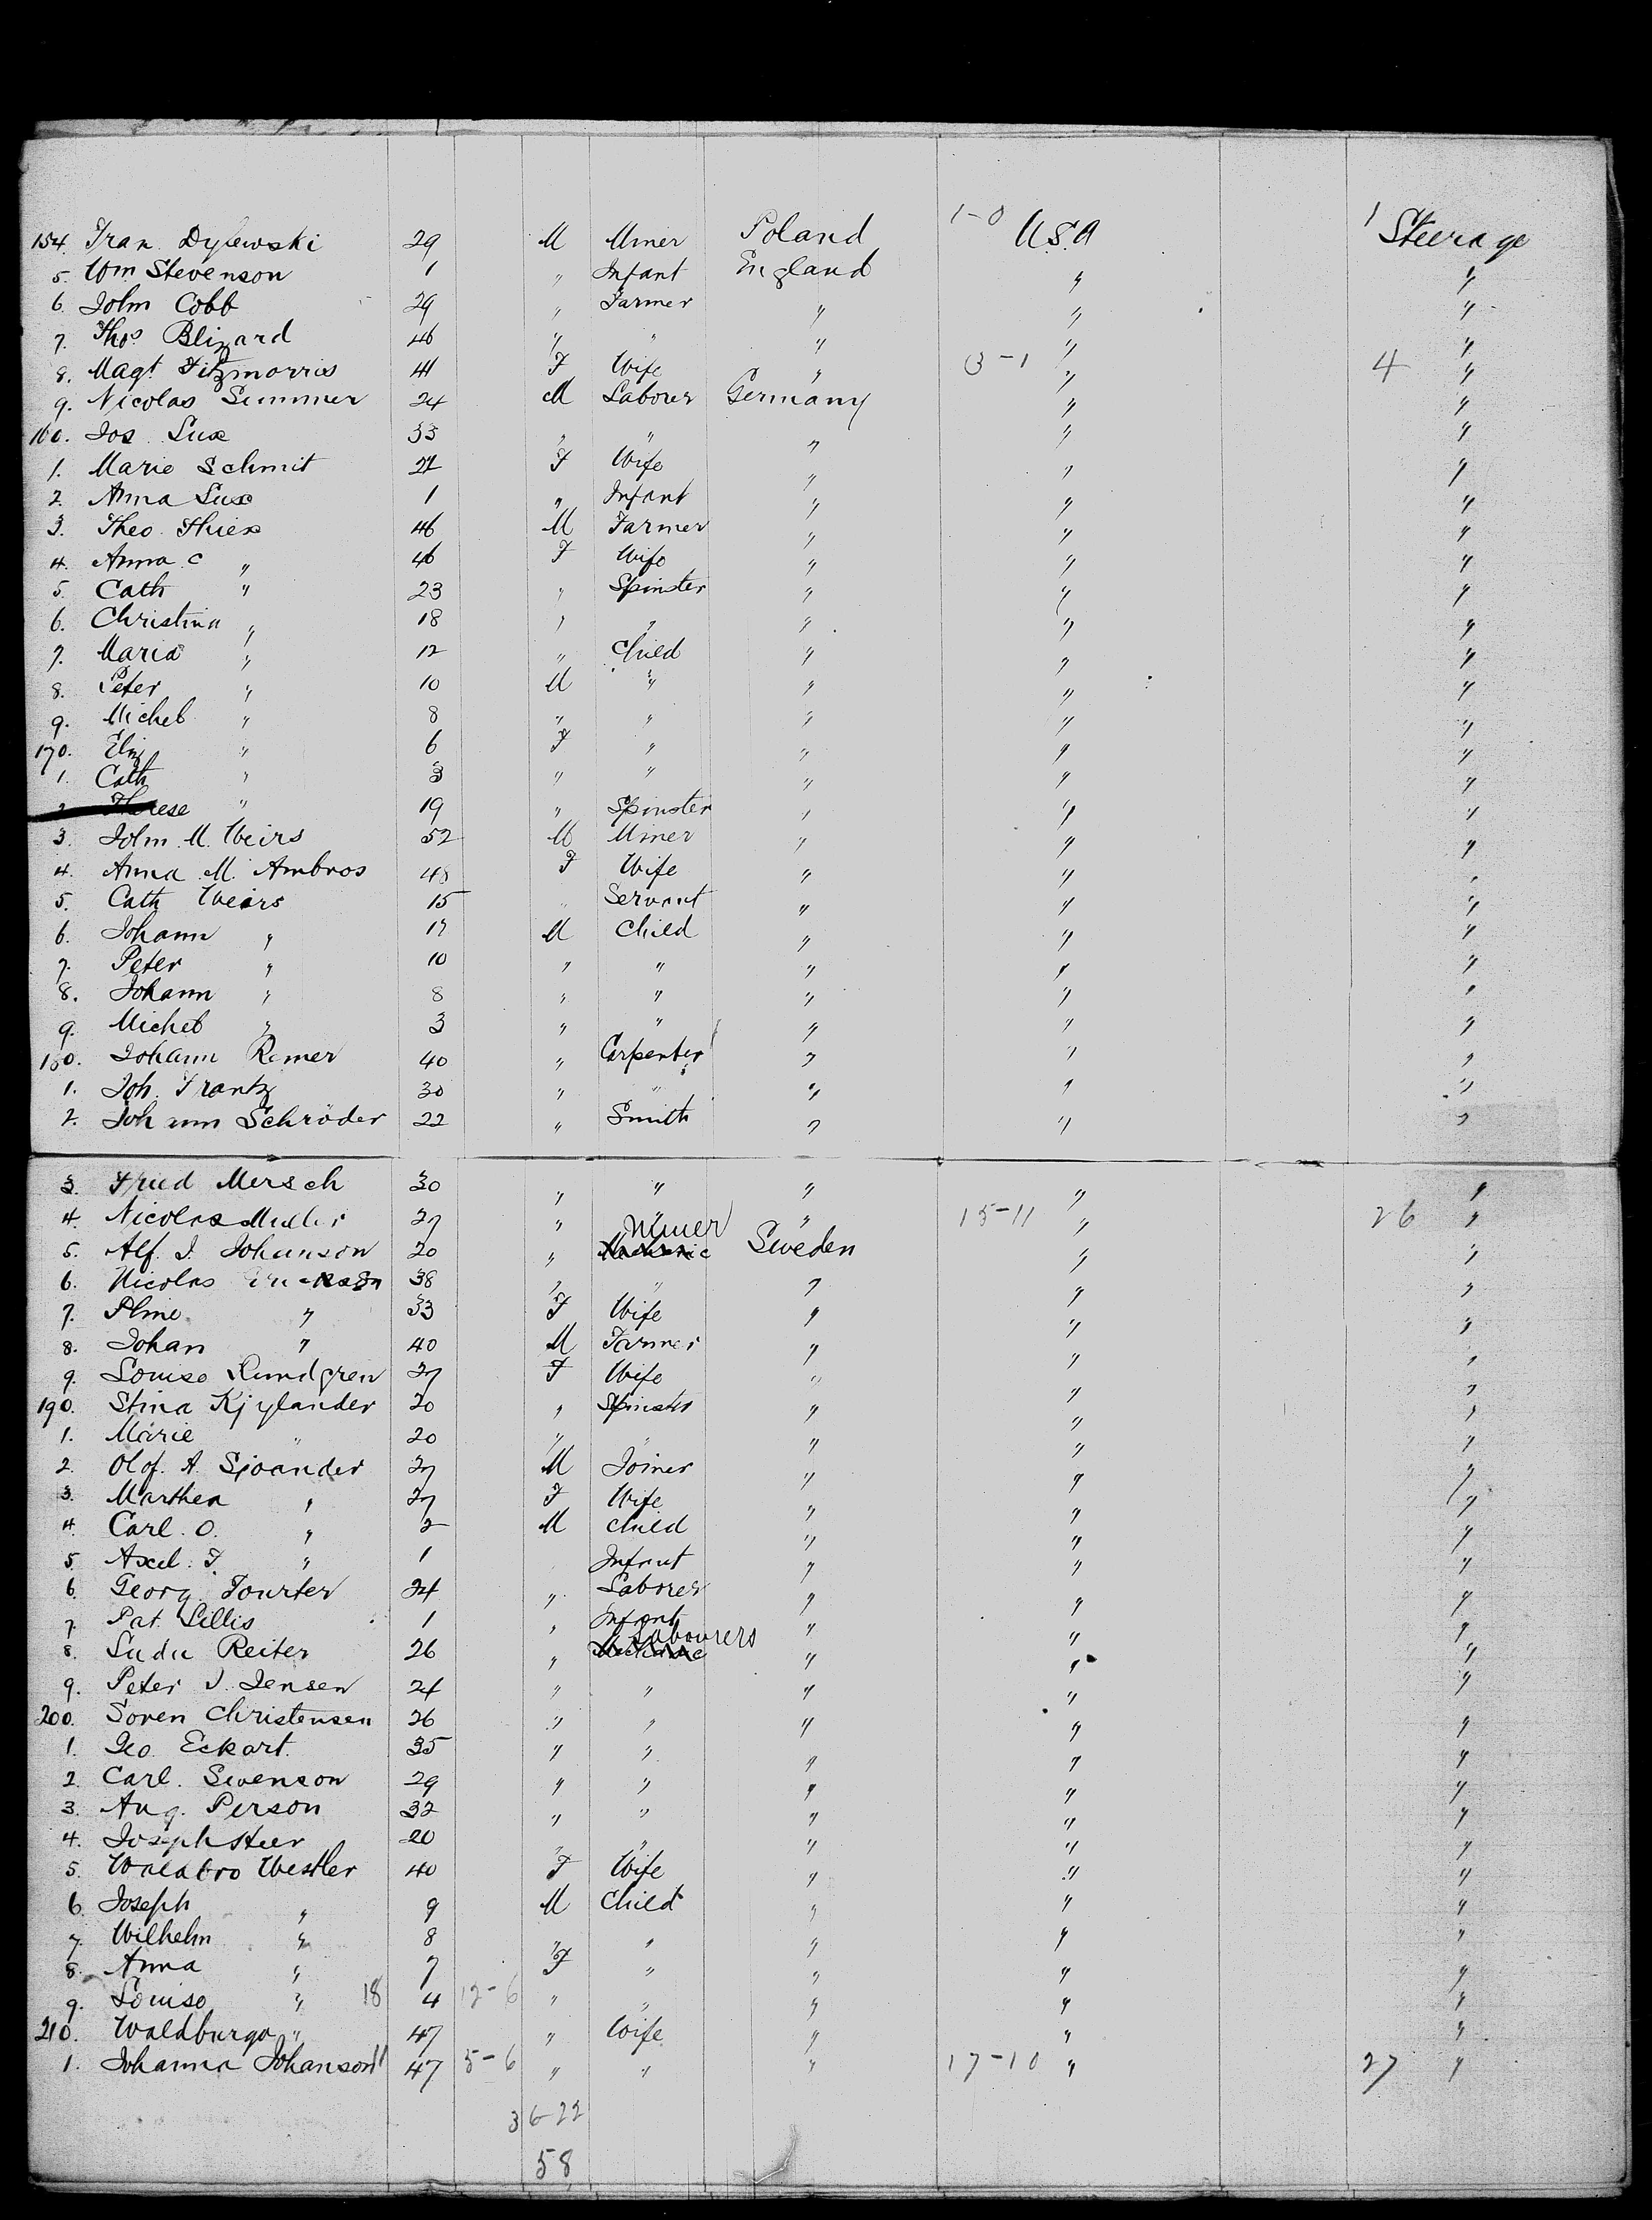 154. Fran Dylewski 29 M Miner Poland 1-0 U.S.A 1 Steerage
5. Wm Stevenson 1 " Infant England " "
6. John Cobb 29 " Farmer " " "
7. Thos Blizard 46 " " " " "
8. Magt. Fitzmorris 41 F Wife " 3-1 " 4 "
9. Nicolas Summer 24 M Laborer Germany " "
160. Jos. Lux 33 " " " " "
1. Marie Schmit 21 F Wife " " "
2. Anna Lux 1 " Infant " " "
3. Theo. Thiex 46 M Farmer " " "
4. Anna C " 46 F Wife " " "
5. Cath " 23 " Spinster " " "
6. Christina " 18 " " " " "
7. Maria " 12 " Child " " "
8. Peter " 10 M " " " "
9. Michel " 8 " " " " "
170. Eliz " 6 F " " " "
1. Cath " 3 " " " " "
2. Therese " 19 " Spinster " " "
3. John M. Weirs 52 M Miner " " "
4. Anna M. Ambros 48 F Wife " " "
5. Cath Weirs 15 " Servant " " "
6. Johann " M Child " " "
7. Peter " 10 " " " " "
8. Johann " 8 " " " " "
9. Michel " 3 " " " " "
180. Johann Remer 40 " Carpenter " " "
1. Joh. Frantz 30 " " " " "
2. Johann Schröder 22 " Smith " " "
3. Fried Mersch 30 " " " " "
4. Nicolas Muller 27 " " " 15-11 " 26 "
5. Alf. J. Johanson 20 " Miner Sweden " "
6. Nicolas 38 " " " " "
7. " 33 F Wife " " "
8. Johan " 40 M Farmer " " "
9. Louise Lundgren 27 F Wife " " "
190. Stina Kjylander 20 " Spinster " " "
1. Marie " 20 " " " " "
2. Olof. A. Sjoander 27 M Joiner " " "
3. Marthea " 27 F Wife " " "
4. Carl. O. " 2 M Child " " "
5. Axel. F. " 1 Infant " " "
6. Georg Tourter 24 " Laborer " " "
7. Pat. Lillis 1 " Infant " " "
8. Reiter 26 " Labourers " " "
9. Peter J. Jensen 24 " " " " "
200. Soren Christensen 26 " " " " "
1. Geo. Eckart. 35 " " " " "
2. Carl. Swenson 29 " " " " "
3. Aug. Person 32 " " " " "
4. Joseph Steer 20 " " " " "
5. Westler 40 F Wife " " "
6. Joseph " 9 M Child " " "
7. Wilhelm " 8 " " " " "
8. Anna " 7 F " " " "
9. Louise " 18 4 12-6 " " " " "
210. Waldburga " 47 " Wife " " "
1. Johanna Johanson 47 5-6 " " " 17-10 " 27 "
36-22
58